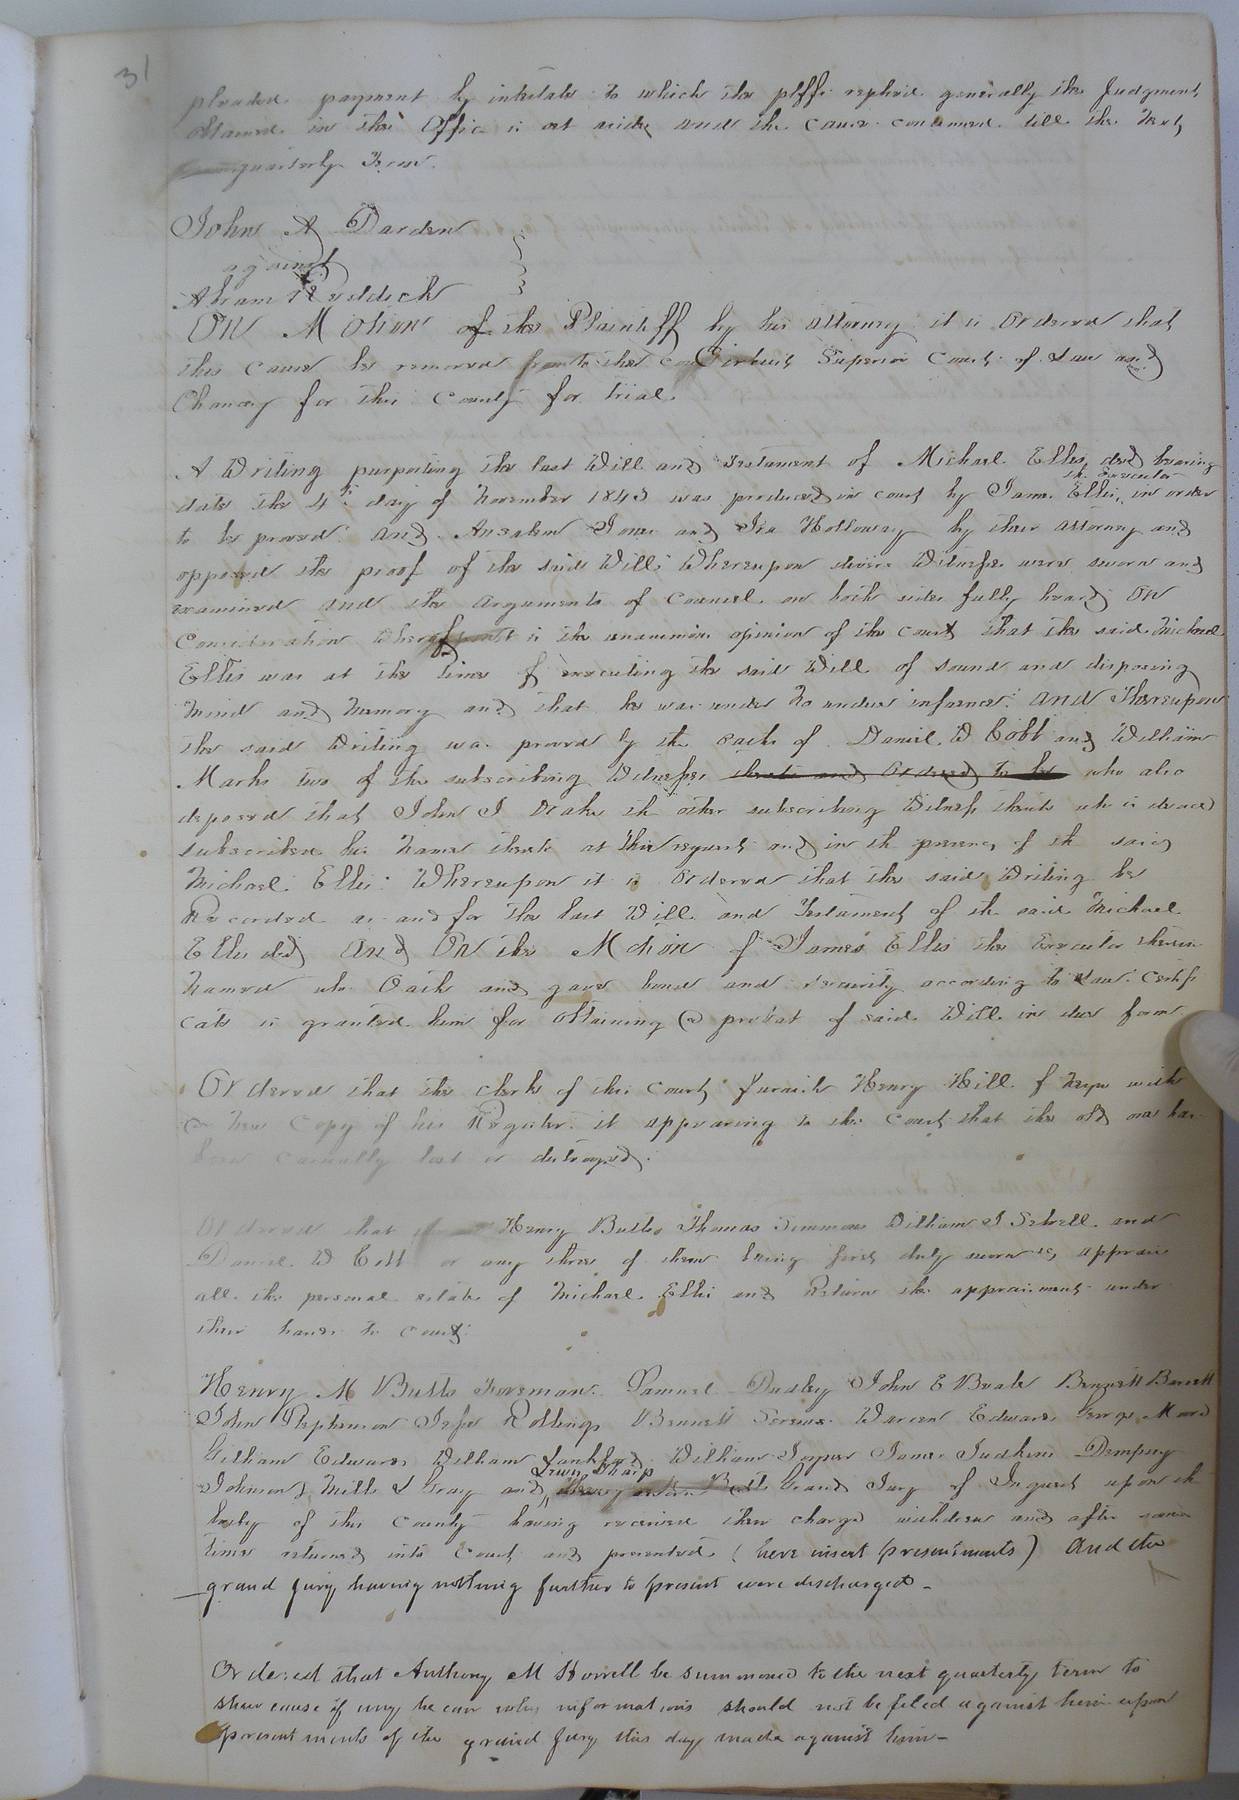 31
pleaded payment by intestate to which the plffs replied generally the Judgment
obtained in the Office is set aside and the cause continued till the Next
quarterly Term.
John A Darden
against
Abram Riddick
On Motion of the Plaintiff by his attorney it is Ordered that
this cause be removed to the Circuit Superior Court of Law and
Chancery for this County for trial.
A Writing purporting the last Will and Testament of Michael Ellis decd bearing
the Executor
date the 4th day of November 1843 was produced in court by James Ellis, in order
to be proved. and Ansalem Jones and Ira Holloway by their attorney and
opposed the proof of the said Will: Whereupon divers Witnesses were sworn and
examined and the arguments of Councel on both sides fully heard On
Consideration whereof it is the unanimous opinion of the court that the said Michael
Ellis was at the time of executing the said Will of sound and disposing
mind and memory and that he was under no undue influence. And Thereupon
the said Writing was proved by the oaths of Daniel W Cobb and William
Marks two of the subscribing Witnesses thereto and Ordered to be who also
deposed that John J Drake the other subscribing Witness thereto who is dead
subscribed his name thereto at their request and in the presence of the said
Michael Ellis: Whereupon it is Ordered that the said Writing be
Recorded as and for the last Will and Testament of the said Michael
Ellis decd And On the Motion of James Ellis the Executor therein
Named who Oath and gave bond and security according to Law Certifi
cate is granted him for obtaining a probat of said Will in due form
Ordered that the clerk of this Court furnish Henry Hill f Negro with
a New Copy of his Register it appearing to the Court that the old one has
been casually lost or destroyed.
Ordered that Henry Butts Thomas Simmons William J Sebrell and
Daniel W Cobb or any three of them being first duly sworn do appraise
all the personal estate of Michael Ellis and Return the appraisment under
their hands to court.
Henry M Butts Foreman. Samuel Dudley John E Beale Bennett Barrett
John Stephenson Jesse Rollings Bennett Warren Edwards George Moore
Gilliam Edwards William William Joyner James Judkins Dempsey
Sharp
Johnson, Mills L Gray and Grand Jury of Inquest upon the
body of this County having received their charge withdrew and after some
time returned into Court and presented (here insert presentments) And the
grand jury having nothing further to present were discharged-
Ordered that Anthony M Horrell be summoned to the next quarterly term to
shew cause if any he can why informations should not be filed against him upon
presentments of the grand jury this day made against him-